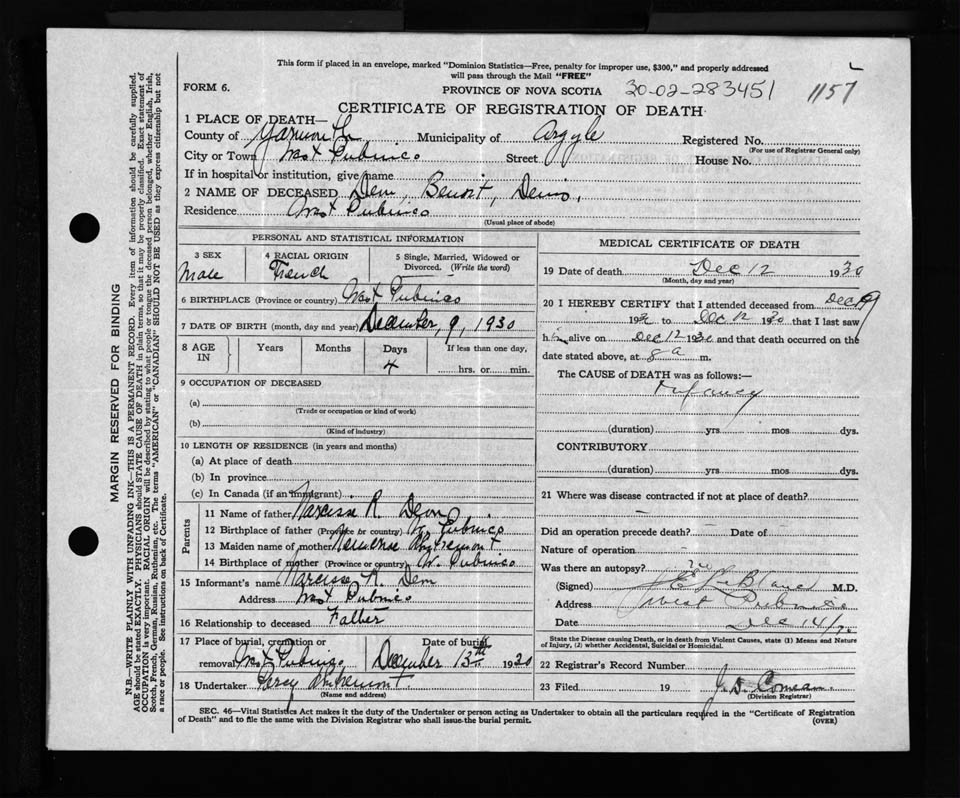 This form if placed in an envelope, marked "Dominion Statistics—Free, penalty for improper use, $300," and properly addressed
will pass through the Mail "FREE"
FORM 6.
PROVINCE OF NOVA SCOTIA 30-02-283451 1157
CERTIFICATE OF REGISTRATION OF DEATH
1 PLACE OF DEATH—
County of Yarmouth Municipality of Argyle Registered No.
(For use of Registrar General only)
City or Town West Pubnico Street House No.
If in hospital or institution, give name
2 NAME OF DECEASED Deon, Benoit, Denis.
Residence West Pubnico
(Usual place of abode)
PERSONAL AND STATISTICAL INFORMATION
3 SEX 4 RACIAL ORIGIN 5 Single, Married, Widowed or
Divorced. (Write the word)
Male French
6 BIRTHPLACE (Province or country) West Pubnico
7 DATE OF BIRTH (month, day and year) December, 9, 1930
8 AGE IN Years Months Days If less than one day,
4 hrs. or min.
9 OCCUPATION OF DECEASED
(a)
(Trade or occupation or kind of work)
(b)
(Kind of industry)
10 LENGTH OF RESIDENCE (in years and months)
(a) At place of death
(b) In province
(c) In Canada (if an immigrant)
Parents
11 Name of father Narcisse R. Deon
12 Birthplace of father (Province or country) W. Pubnico
13 Maiden name of mother
14 Birthplace of mother (Province or country) W. Pubnico
15 Informant's name Narcisse R. Deon
Address West Pubnico
16 Relationship to deceased Father
17 Place of burial, cremation or Date of burial
removal West Pubnico December 13th 1930
18 Undertaker Percy
(Name and address)
MEDICAL CERTIFICATE OF DEATH
19 Date of death Dec 12 1930
(Month, day and year)
20 I HEREBY CERTIFY that I attended deceased from Dec 9
1930 to Dec 12 1930 that I last saw
him alive on Dec 12 1930 and that death occurred on the
date stated above, at 8 a m.
The CAUSE of DEATH was as follows:—
Infancy
(duration) yrs. mos dys.
CONTRIBUTORY
(duration) yrs. mos. dys.
21 Where was disease contracted if not at place of death?
Did an operation precede death? Date of
Nature of operation
Was there an autopsy? no
(Signed) LeBlanc M.D.
Address West Pubnico
Date Dec 14/30
State the Disease causing Death, or in death from Violent Causes, state (1) Means and Nature
of Injury, (2) whether Accidental, Suicidal or Homicidal.
22 Registrar's Record Number
23 Filed 19 J. D. Comeau
(Division Registrar)
SEC. 46—Vital Statistics Act makes it the duty of the Undertaker or person acting as Undertaker to obtain all the particulars required in the "Certificate of Registration
of Death" and to file the same with the Division Registrar who shall issue the burial permit. (OVER)
MARGIN RESERVED FOR BINDING
N.B.—WRITE PLAINLY WITH UNFADING INK—THIS IS A PERMANENT RECORD. Every item of information should be carefully supplied.
AGE should be stated EXACTLY. PHYSICIANS should STATE CAUSE OF DEATH in plain terms, so that it may be properly classified. Exact statement of
OCCUPATION is very important. RACIAL ORIGIN will be described by stating to what people or tongue the deceased person belonged, whether English, Irish,
Scotch, French, German, Russian, Ruthenian, etc. The terms "AMERICAN" or "CANADIAN" SHOULD NOT BE USED as they express citizenship but not
a race or people. See instructions on back of Certificate.